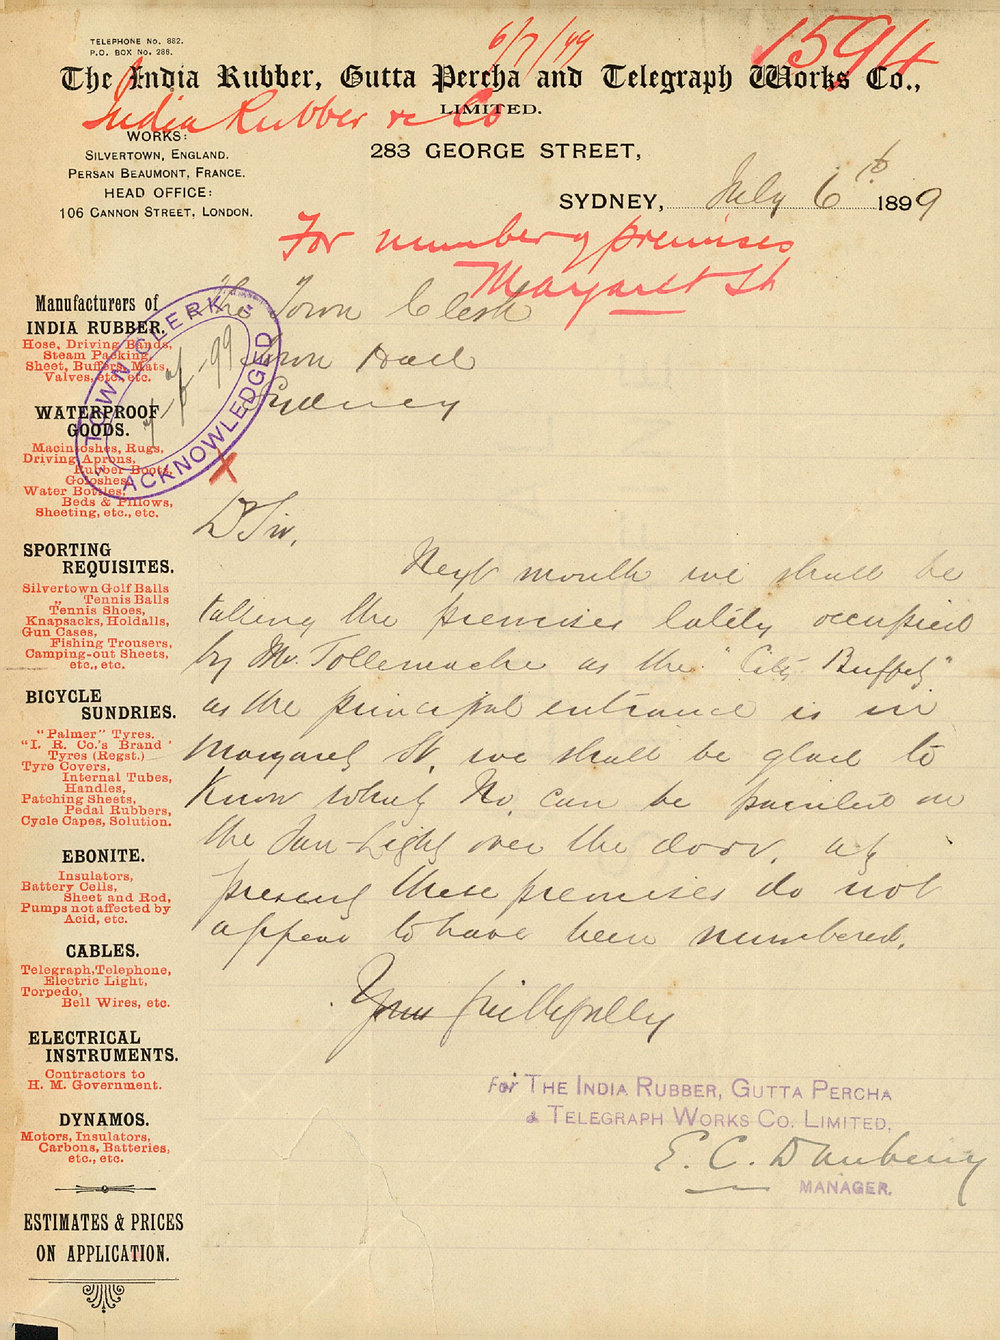 TELEPHONE No. 882.
P.O. BOX No. 286.
6/7/99
1594
The India Rubber, Gutta Percha and Telegraph Works Co.,
LIMITED.
India Rubber &c Co
WORKS:
SILVERTOWN, ENGLAND.
PERSAN BEAUMONT, FRANCE.
HEAD OFFICE:
106 CANNON STREET, LONDON.
283 GEORGE STREET,
SYDNEY, July 6th. 1899
For number of premises
Margaret St
The Town Clerk
Town Hall
Sydney
TOWN CLERK
ACKNOWLEDGED
X
Dr Sir,
Next month we shall be
taking the premises lately occupied
by Mr. Tollemache as the "City Buffet"
as the principal entrance is in
Margaret St. we shall be glad to
know what No. can be painted on
the Fan-Light over the door. at
present these premises do not
appear to have been numbered.
Yours faithfully
for THE INDIA RUBBER, GUTTA PERCHA
& TELEGRAPH WORKS CO. LIMITED.
E. C. Daubeny
MANAGER.
Manufacturers of
INDIA RUBBER.
Hose, Driving Bands,
Steam Packing,
Sheet, Buffers, Mats,
Valves, etc., etc.
WATERPROOF
GOODS.
Macintoshes, Rugs,
Driving Aprons,
Rubber Boots,
Goloshes,
Water Bottles,
Beds & Pillows,
Sheeting, etc., etc.
SPORTING
REQUISITES.
Silvertown Golf Balls
„ Tennis Balls
Tennis Shoes,
Knapsacks, Holdalls,
Gun Cases,
Fishing Trousers,
Camping-out Sheets,
etc., etc.
BICYCLE
SUNDRIES.
"Palmer" Tyres.
"I. R. Co.'s Brand'
Tyres (Regst.)
Tyre Covers,
Internal Tubes,
Handles,
Patching Sheets,
Pedal Rubbers,
Cycle Capes, Solution.
EBONITE.
Insulators,
Battery Cells,
Sheet and Rod,
Pumps not affected by
Acid, etc.
CABLES.
Telegraph, Telephone,
Electric Light,
Torpedo,
Bell Wires, etc.
ELECTRICAL
INSTRUMENTS.
Contractors to
H. M. Government.
DYNAMOS.
Motors, Insulators,
Carbons, Batteries,
etc., etc.
ESTIMATES & PRICES
ON APPLICATION.